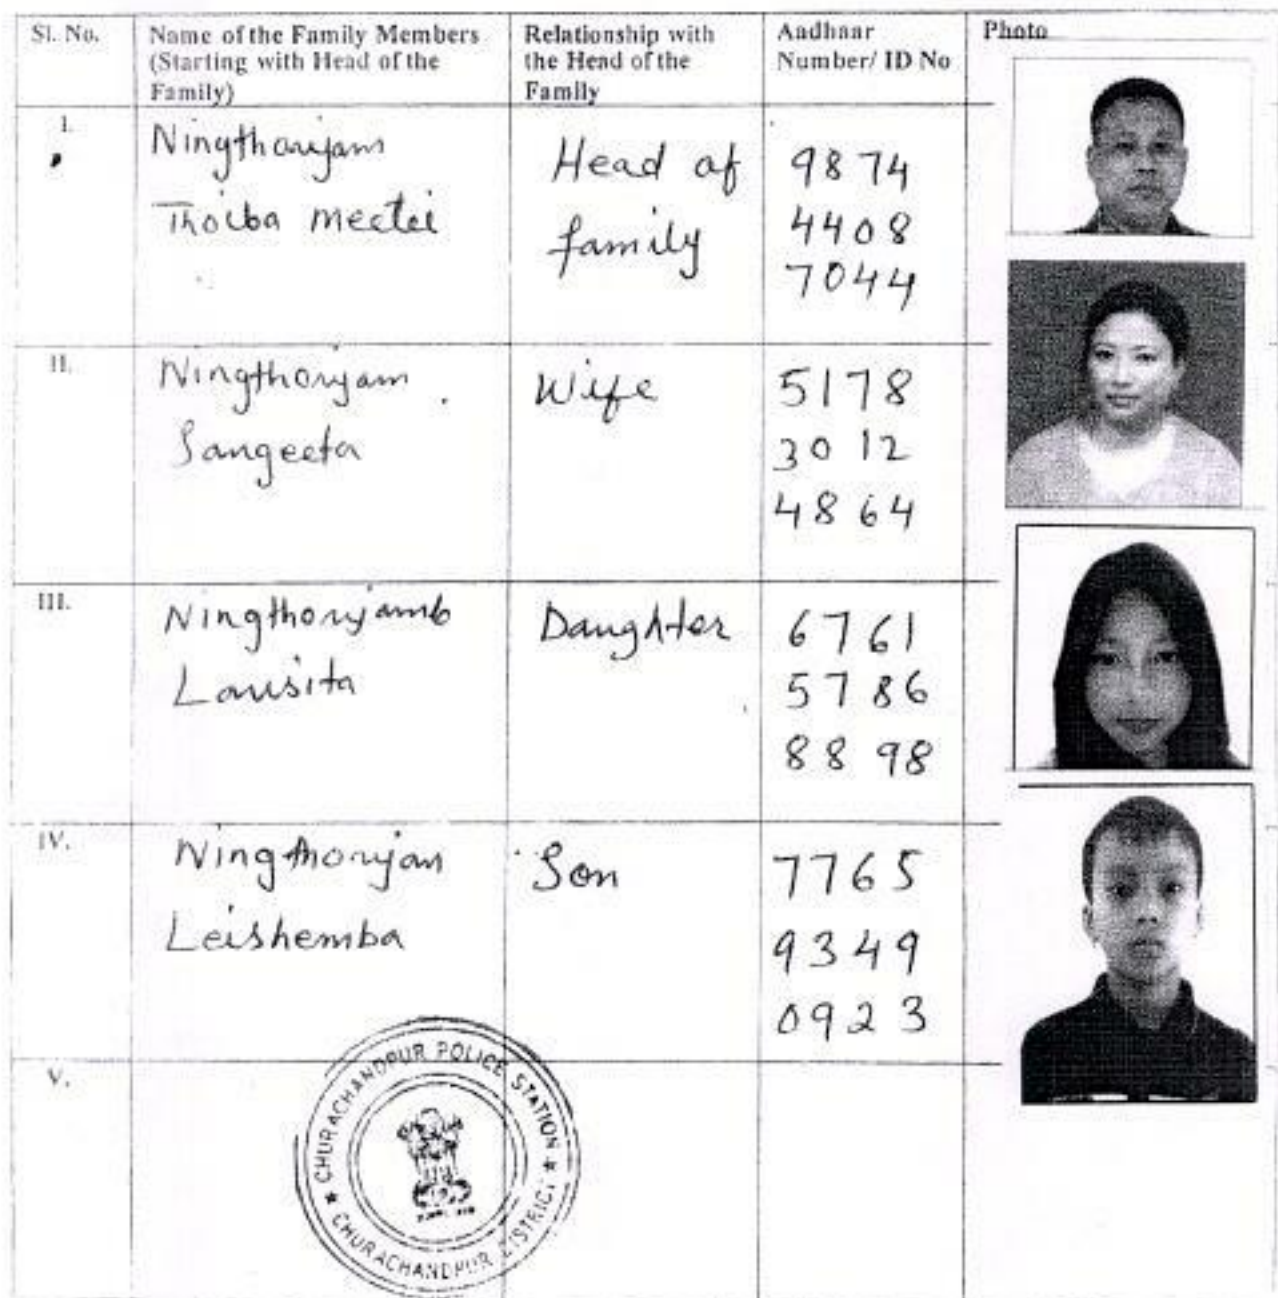 Sl. No.
Name of the Family Members
(Starting with Head of the
Family)
Relationship with
the Head of the
Family
Aadhaar
Number/ ID No
Photo
I.
Ningthoujam
Thoiba Meetei
Head of
family
9874
4408
7044
II.
Ningthoujam
Sangeeta
Wife
5178
3012
4864
III.
Ningthoujamb
Daughter
6761
5786
8898
IV.
Ningthoujam
Leishemba
Son
7765
9349
0923
V.
CHURACHANDPUR POLICE STATION
CHURACHANDPUR DISTRICT